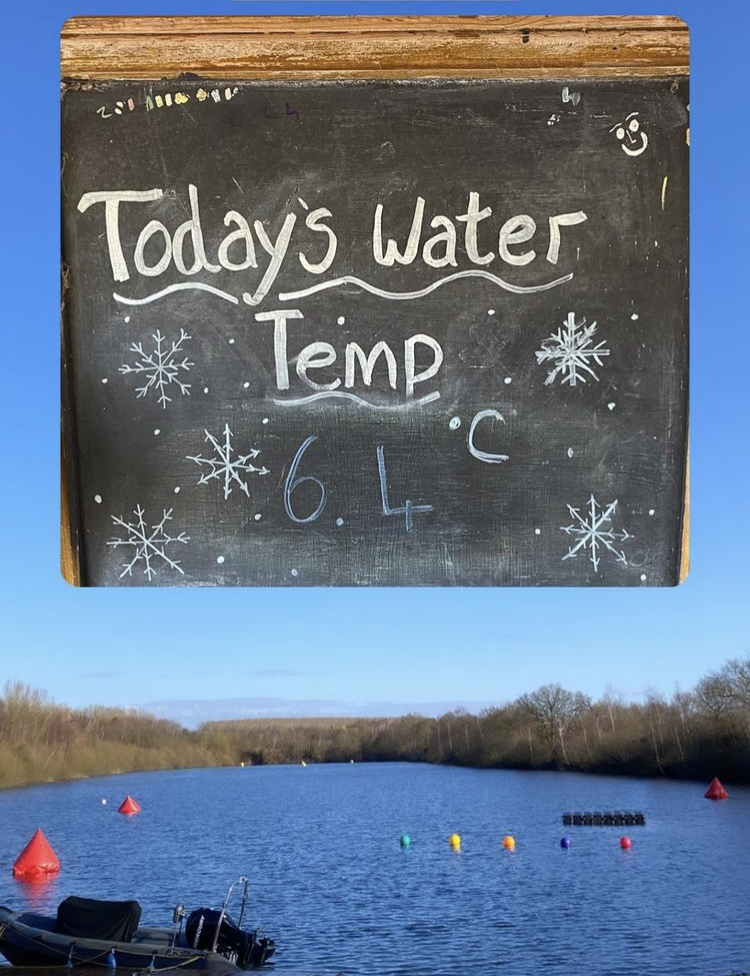 Today's Water
Temp
°C
6.4
MERCURY